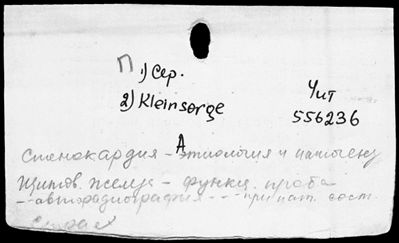 П 1) Сер.
2) Kleinsorge
Чит
556236
А
Стенокардия - этиология и патогенез
Щитов. желез - функц. проба
- авторадиография - - при пат. сост.